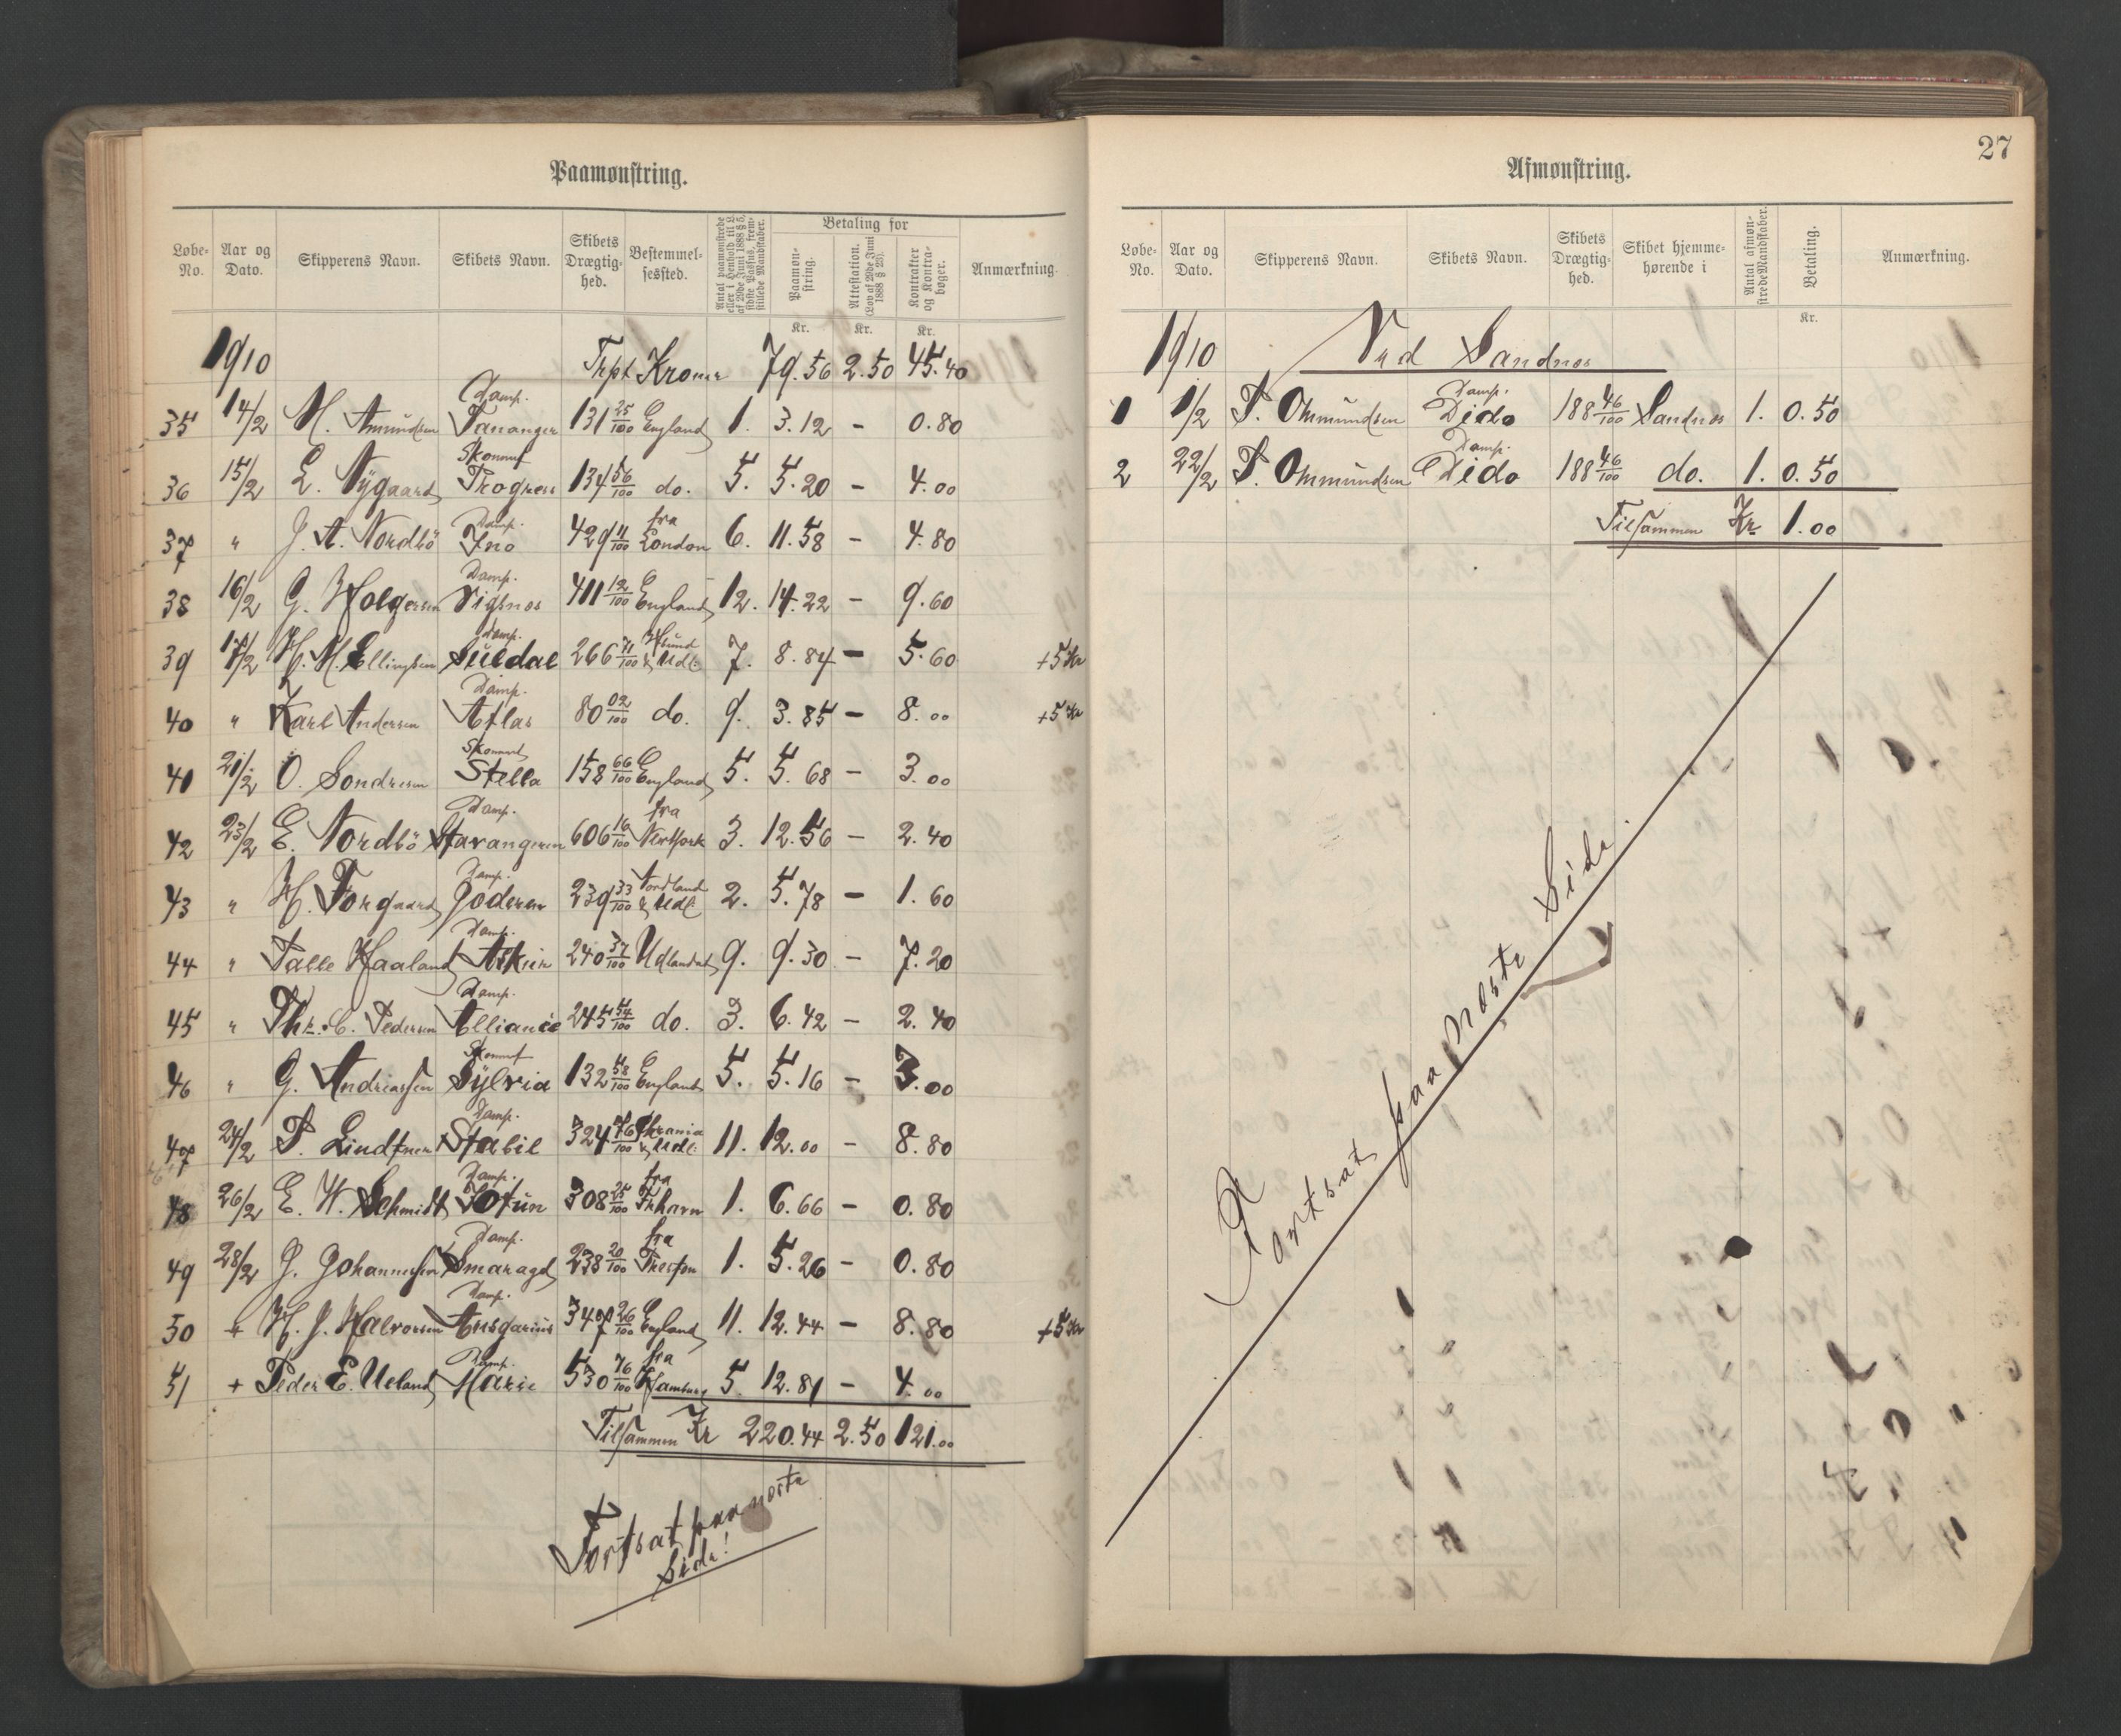 Paamønstring.
Løbe-No. Aar og Dato. Skipperens Navn. Skibets Navn. Skibets Drægtig-hed. Bestemmel-sessted. Antal paamønstrede eller i Henhold til L. af 29de Juni 1888 § 5, sidste Passus, frem-stillede Mandskaber. Betaling for Paamøn-string. Attestation. (Lov af 29de Juni 1888 § 23). Kontrakter og Kontra-bøger. Anmærkning.
Kr. Kr. Kr.
1910 Trpt Kroner 79.56 2.50 45.40
35 14/2 M. Amundsen Damp. Tananger 131 25/100 England 1. 3.12 - 0.80
36 15/2 L. Nÿgaard Skonnert Progress 134 56/100 do. 5. 5.20 - 4.00
37 " J. A. Nordbö Damp. Ino 429 11/100 fra London 6. 11.58 - 4.80
38 16/2 G. Holgersen Damp. Vigsnes 411 12/100 England 12. 14.22 - 9.60
39 17/2 H. M. Ellingsen Damp. Suldal 266 71/100 & Udl. 7. 8.84 - 5.60 +5 Kr
40 " Karl Andersen Damp. Atlas 80 02/100 do. 9. 3.85 - 8.00 +5 Kr
41 21/2 O. Sondresen Skonnert Stella 158 66/100 England 5. 5.68 - 3.00
42 23/2 E. Nordbö Damp. Stavangeren 606 16/100 fra NewYork 3. 12.56 - 2.40
43 " H. Torgaard Damp. Goderen 239 33/100 Nordland & Udl. 2. 5.78 - 1.60
44 " Palle Haaland Damp. Askur 240 37/100 Udlandet 9. 9.30 - 7.20
45 " Thr. C. Pedersen Damp. Alliance 245 54/100 do. 3. 6.42 - 2.40
46 " G. Andreassen Skonnert Sÿlvia 132 58/100 England 5. 5.16 - 3.00
47 24/2 P. Lindtner Damp. Stabil 324 76/100 Khrania & Udl. 11. 12.00 - 8.80
48 26/2 E. W. Schmidt Damp. Jotun 308 25/100 fra 1. 6.66 - 0.80
49 28/2 J. Johannessen Damp. Smaragd 238 20/100 fra 1. 5.26 - 0.80
50 + H. J. Halvorsen Damp. Ansgarius 347 26/100 England 11. 12.44 - 8.80 +5 Kr
51 + Peder E. Ueland Damp. Marie 530 76/100 fra Hamburg 5. 12.81 - 4.00
Tilsammen Kr 220.44 2.50 121.00
Fortsat paa næste
Side!
27
Afmønstring.
Løbe-No. Aar og Dato. Skipperens Navn. Skibets Navn. Skibets Drægtig-hed. Skibet hjemme-hørende i Antal afmøn-strede Mandskaber. Betaling. Anmærkning.
Kr.
1910 Ved Sandnes
1 1/2 P. Ommundsen Damp. Dido 188 46/100 Sandnes 1. 0.50
2 22/2 P. Ommundsen Damp. Dido 188 46/100 do. 1. 0.50
Tilsammen Kr 1.00
Fortsat paa næste Side.